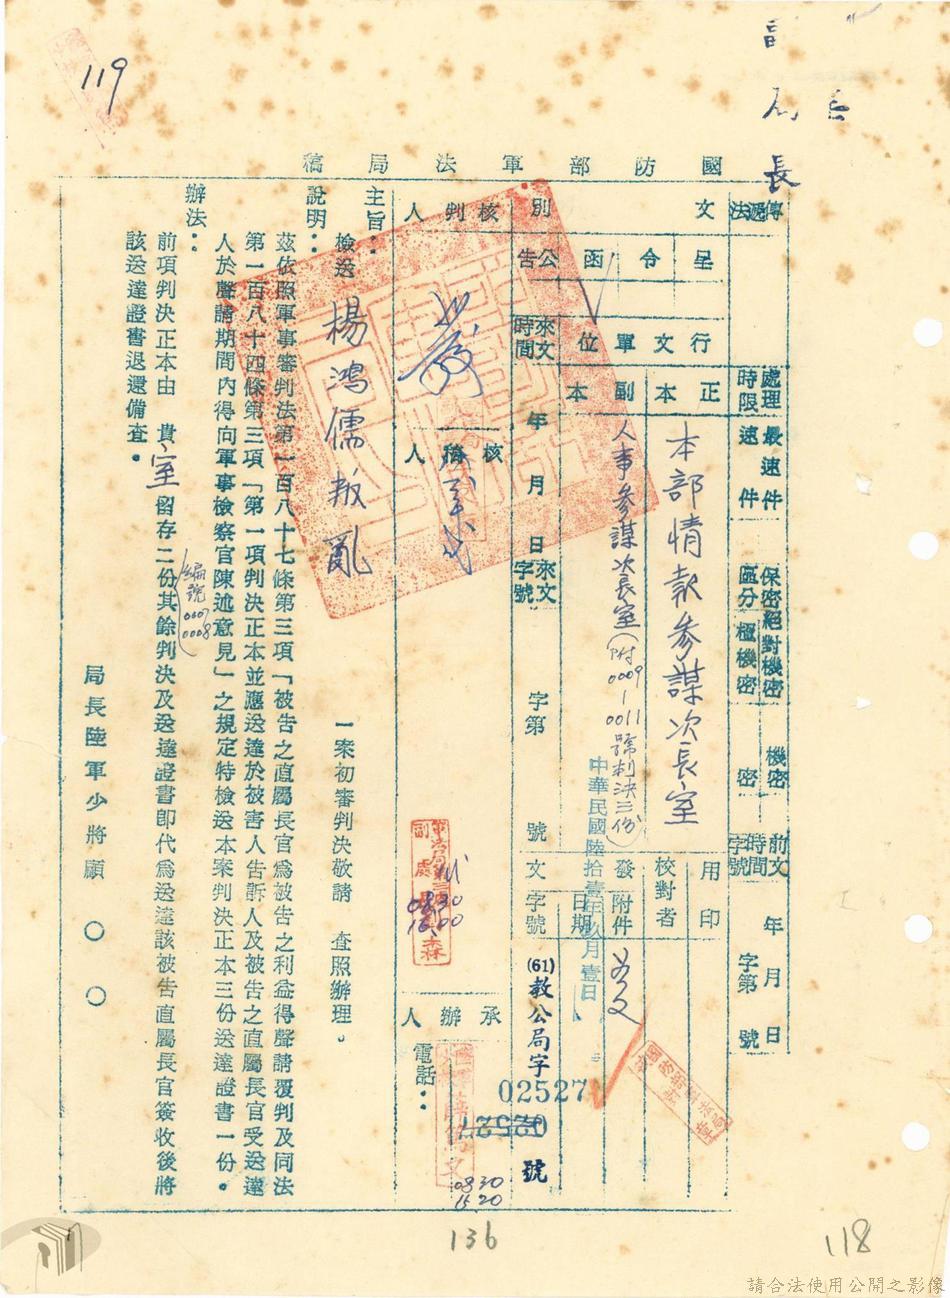 119
副局長
國防部軍法局稿
傳遞法
文別
呈
令
函
公告
行文單位
來文時間
年 月 日
來文字號
字第 號
處理時限
最速件
速件
保密區分
絕對機密
極機密
機密
密
前文時間字號
年 月 日
字第 號
正本
本部情報參謀次長室
副本
人事參謀次長室(附0009-0011號判決三份)
用印
校對者
發文
附件
日期
字號
中華民國陸拾壹年 月壹日
(61)教公局字
02527
02527
號
核判人
核稿人
代
0830
1600
承辦人
電話：
0830
1520
主旨：
檢送 楊鴻儒叛亂 一案初審判決敬請 查照辦理。
說明：
茲依照軍事審判法第一百八十七條第三項「被告之直屬長官為被告之利益得聲請覆判及同法
第一百八十四條第三項「第一項判決正本並應送達於被害人告訴人及被告之直屬長官受送達
人於聲請期間內得向軍事檢察官陳述意見」之規定特檢送本案判決正本三份送達證書一份。
辦法：
前項判決正本由 貴室留存二份其餘判決及送達證書即代為送達該被告直屬長官簽收後將
(編號0007 0008)
該送達證書退還備查。
局長陸軍少將顧 〇 〇
136
118
請合法使用公開之影像